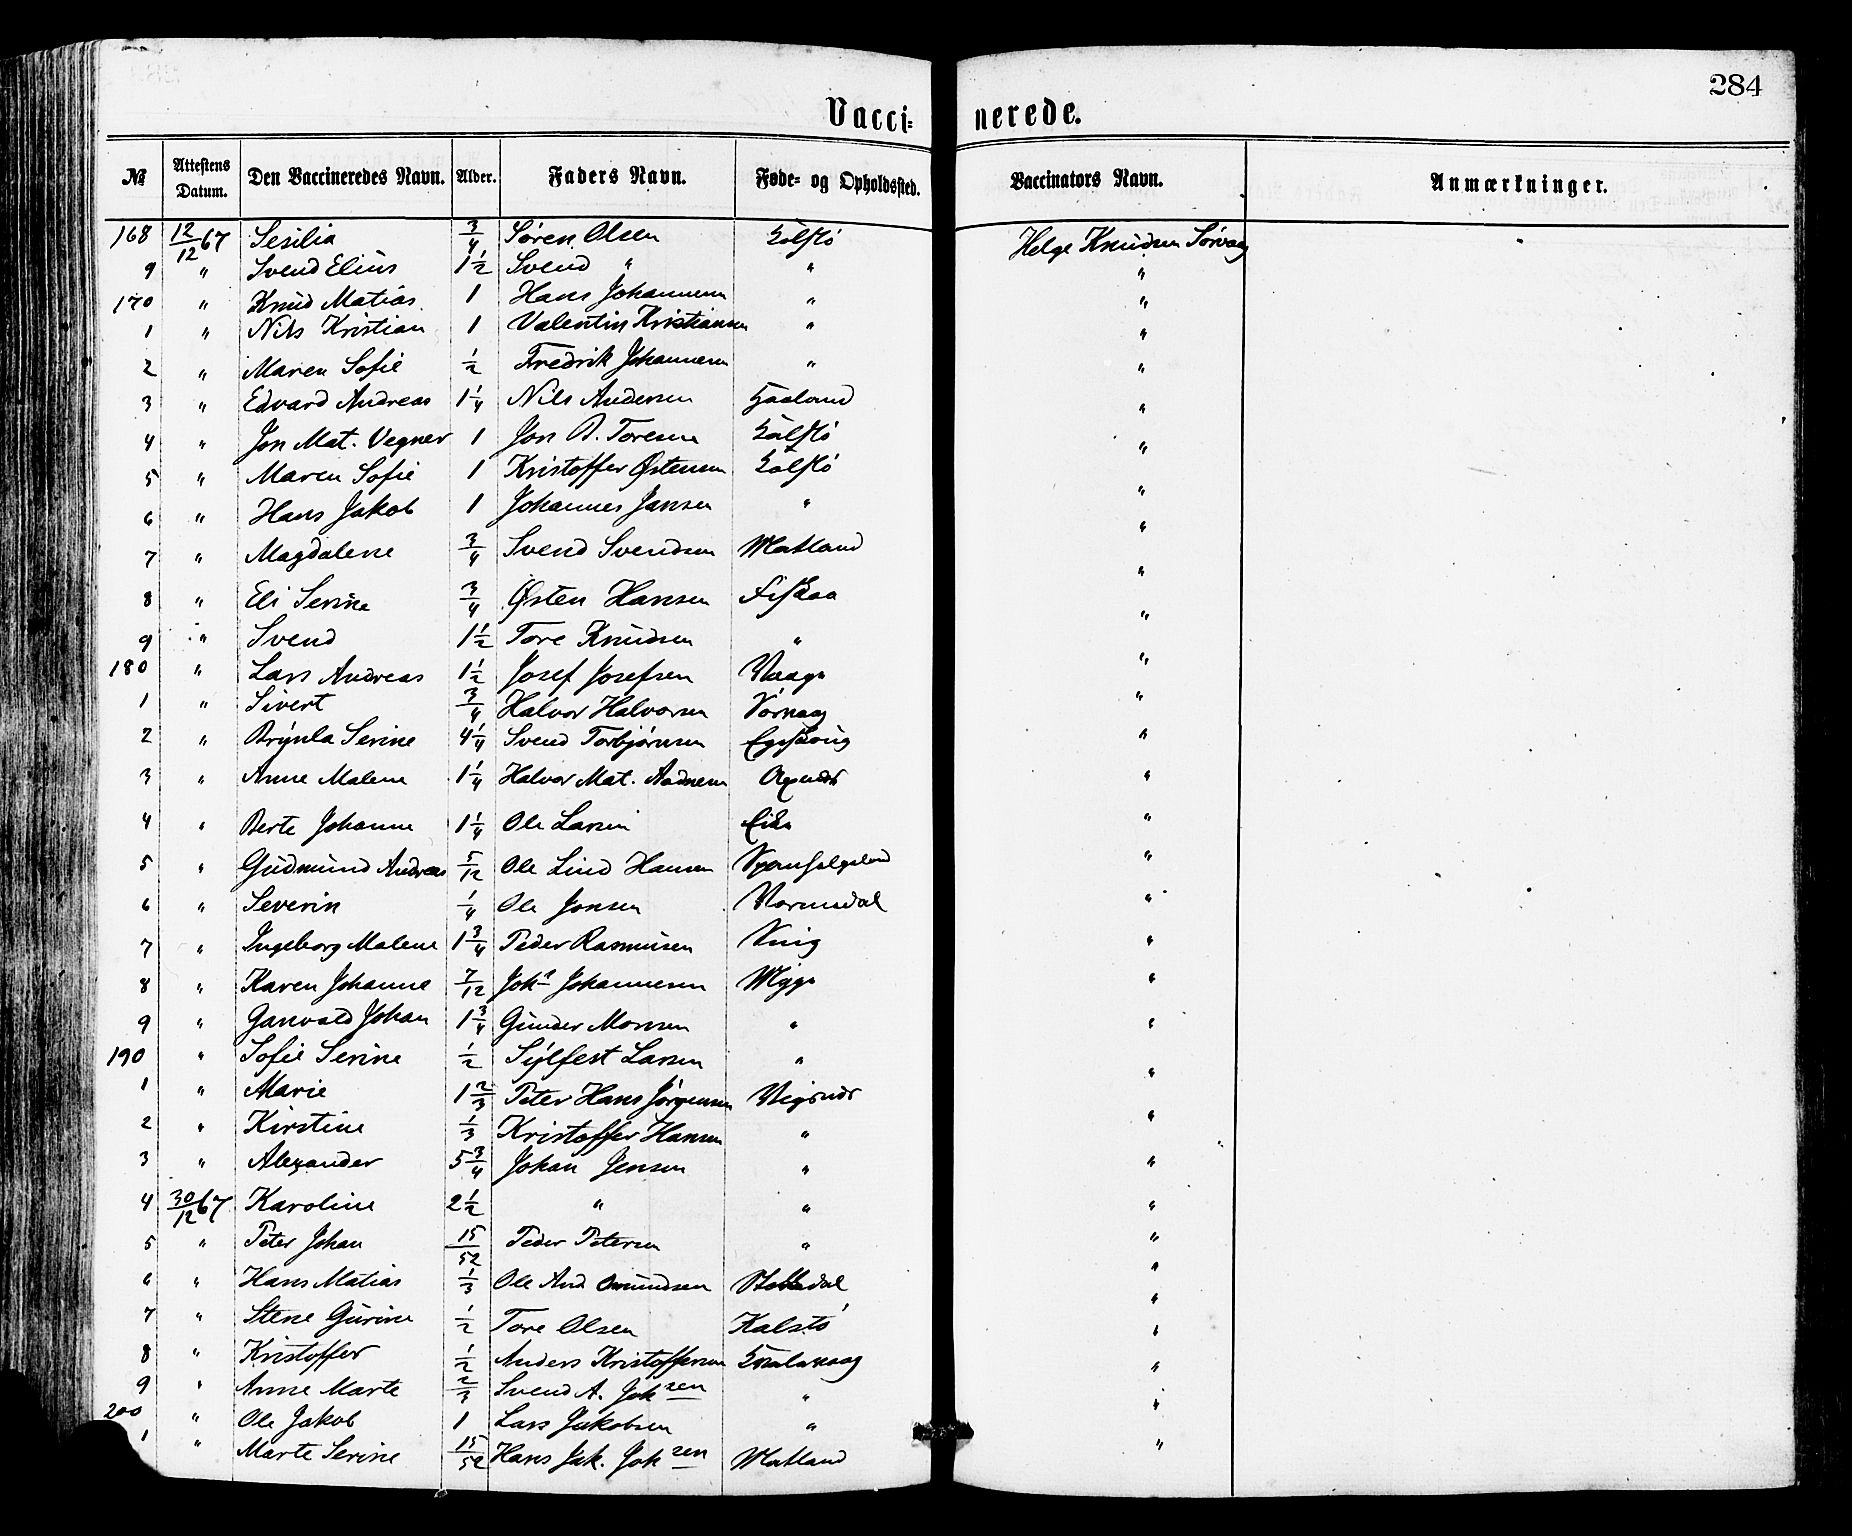 284
Vacci- nerede.
№ Attestens Datum. Den Vaccineredes Navn. Alder. Faders Navn. Føde- og Opholdssted. Vaccinators Navn. Anmærkninger.
168 12/12 67 Sesilia 3/4 Søren Olsen Helge Knudsen Sørvaag
9 " Svend Elius 1 1/2 Svend " " "
170 " Knud Matias 1 Hans Johannesen " "
1 " Nils Kristian 1 Valentin Kristiansen " "
2 " Maren Sofie 1/2 Fredrik Johannesen " "
3 " Edvard Andreas 1 1/4 Nils Andersen Haaland "
4 " Jon Mat. Vegner 1 Jon B. Toresen "
5 " Maren Sofie 1 Kristoffer Østensen "
6 " Hans Jakob 1 Johannes Jansen " "
7 " Magdalene 3/4 Svend Svendsen Matland "
8 " Eli Serine 3/4 Østen Hansen Fiskaa "
9 " Svend 1 1/2 Tore Knudsen " "
180 " Lars Andreas 1 1/2 Josef Josefsen Vaage "
1 " Sivert 3/4 Halvor Halvorsen "
2 " Brynla Serine 4 1/4 Svend Torbjørnsen "
3 " Anne Malene 1 1/4 Halvor Mat. Aadnesen "
4 " Berte Johanne 1 1/4 Ole Larsen Eike "
5 " Gudmund Andreas 5/12 Ole Lind Hansen "
6 " Severin 1/4 Ole Jonsen Vormedal "
7 " Ingeborg Malene 1 3/4 Peder Rasmusen "
8 " Karen Johanne 7/12 Johs Johannesen Mygge "
9 " Garvald Johan 1 3/4 Gunder Monsen " "
190 " Sofie Serine 1/2 Sylfest Larsen " "
1 " Marie 1 2/3 Peter Hans Jørgensen Vigsnes "
2 " Kirstine 1/3 Kristoffer Hansen " "
3 " Alexander 5 3/4 Johan Jensen " "
4 30/12 67 Karoline 2 1/2 " " "
5 " Peter Johan 15/52 Peder Petersen " "
6 " Hans Matias 1/3 Ole And Omundsen "
7 " Stene Gurine 1/2 Tore Olsen Kalstø "
8 " Kristoffer 1/2 Anders Kristoffersen Kvalavaag "
9 " Anne Marte 2/3 Svend A. Johsen " "
200 " Ole Jakob 1 Lars Jakobsen " "
1 " Marte Serine 15/52 Hans Jak. Johsen Matland "